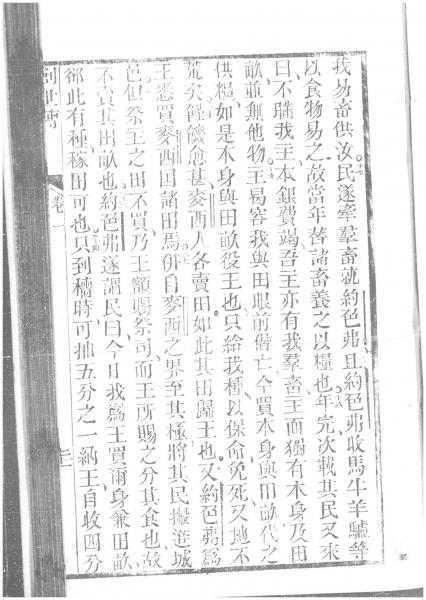 我易畜供汝民遂牽羣畜就約色弗且約色弗收馬牛羊驢等
以食物易之故當年替諸畜養之以糧也年完次載其民又來
曰不瞞我主本銀費竭吾主亦有我羣畜主而獨有本身及田
畝並無他物王曷容我與田眼前偕亡今買本身與田畝代之
供糧如是本身與田畝役王也只給我種以保命免死又地不
荒矣饉饑愈甚麥西人各賣田如此其田歸王也又約色弗為
王悉買麥西国諸田焉併自麥西之界至其極將其民搬進城
邑但祭王之田不買乃王額賜祭司而王所賜之分其食也故
不賣其田畝也約色弗遂謂民曰今日我為王買爾身兼田畝
郤此有種稼田可也只到穡時可抽五分之一納王自收四分
創世傳
卷一